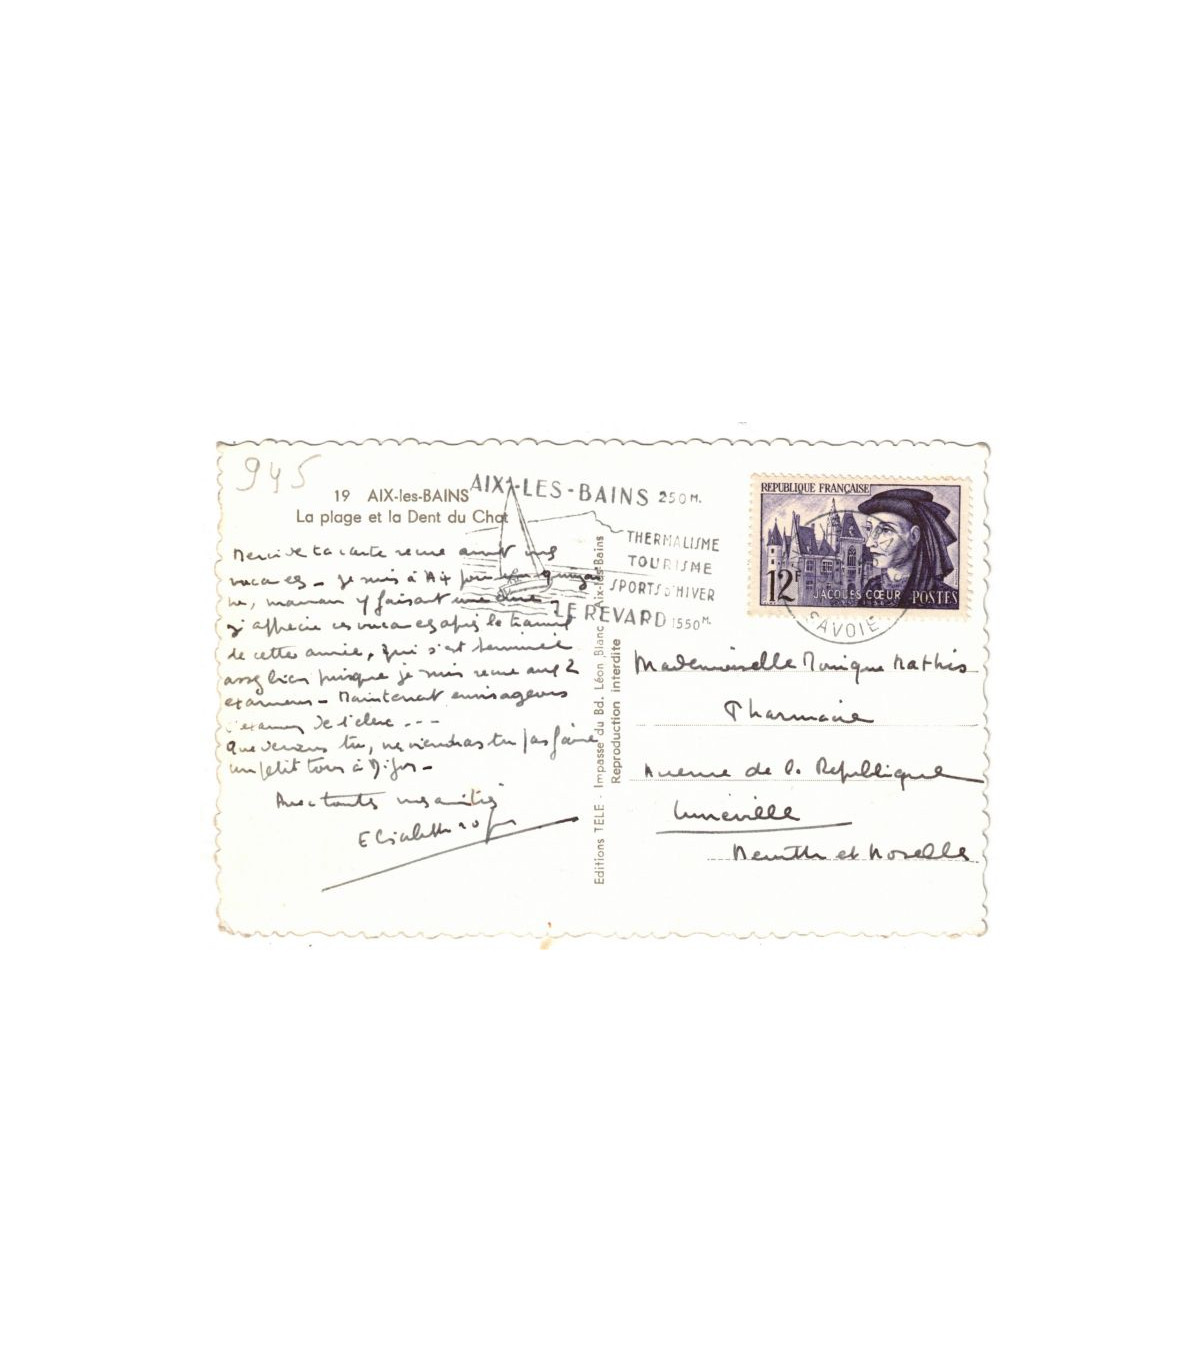 945
19 AIX-les-BAINS
La plage et la Dent du Chat
AIX-LES-BAINS 250 M.
THERMALISME
TOURISME
SPORTS D'HIVER
LE REVARD 1550 M.
REPUBLIQUE FRANÇAISE
12F
JACQUES CŒUR POSTES
SAVOIE
Merci de ta carte reçue avant mes
vacances - Je suis à Aix pour une quinzai
ne, maman y faisant une cure -
J'apprécie ces vacances après le travail
de cette année, qui s'est terminée
assez bien puisque je suis reçue aux 2
examens - Maintenant envisageons
l'examen de
Que deviens tu, ne viendras tu pas faire
un petit tour à Dijon -
Avec toutes mes amitiés
Elisabeth
Editions TELE - Impasse du Bd. Léon Blanc, Aix-les-Bains
Reproduction interdite
Mademoiselle Monique Mathis
Pharmacie
Avenue de la République
Lunéville
Meurthe et Moselle